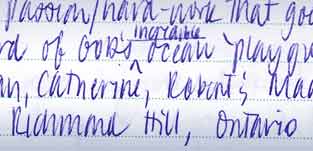 passion/hard-work that goe
rd of God's incredible ocean playgr
an, Catherine, Robert & Mad
Richmond Hill, Ontario